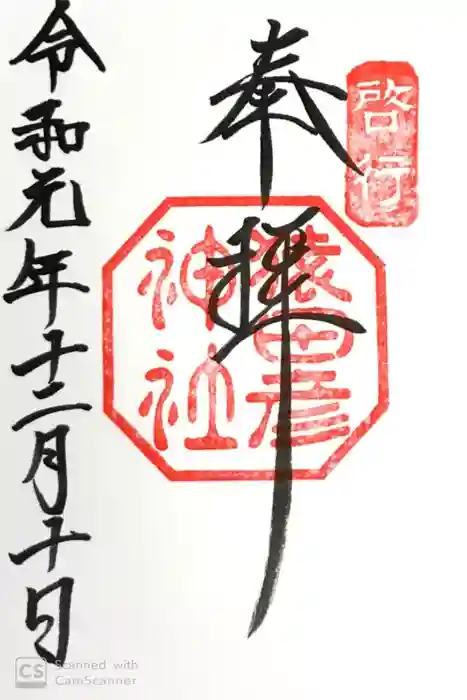 啓行
奉拝
猿田彦
神社
令和元年十二月十日
CS Scanned with
CamScanner